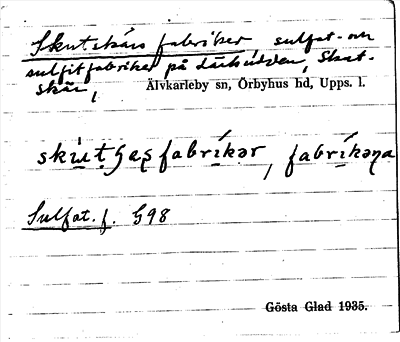 Skutskärs fabriker sulfat- och
sulfitfabriker på Lusudden, Skut-
skär,
Älvkarleby sn, Örbyhus hd, Upps. l.
skut̨ʂæʂfabríkər, fabríkəɳa
Sulfat.f. G98
Gösta Glad 1935.